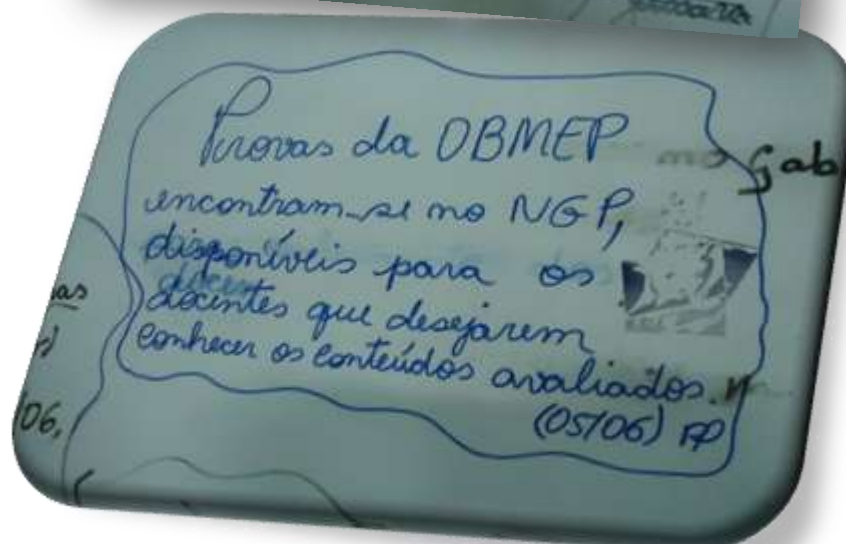 Provas da OBMEP
encontram-se no NGP,
disponíveis para os
docentes que desejarem
conhecer os conteúdos avaliados.
(05/06) PP
no Gab
as
06,